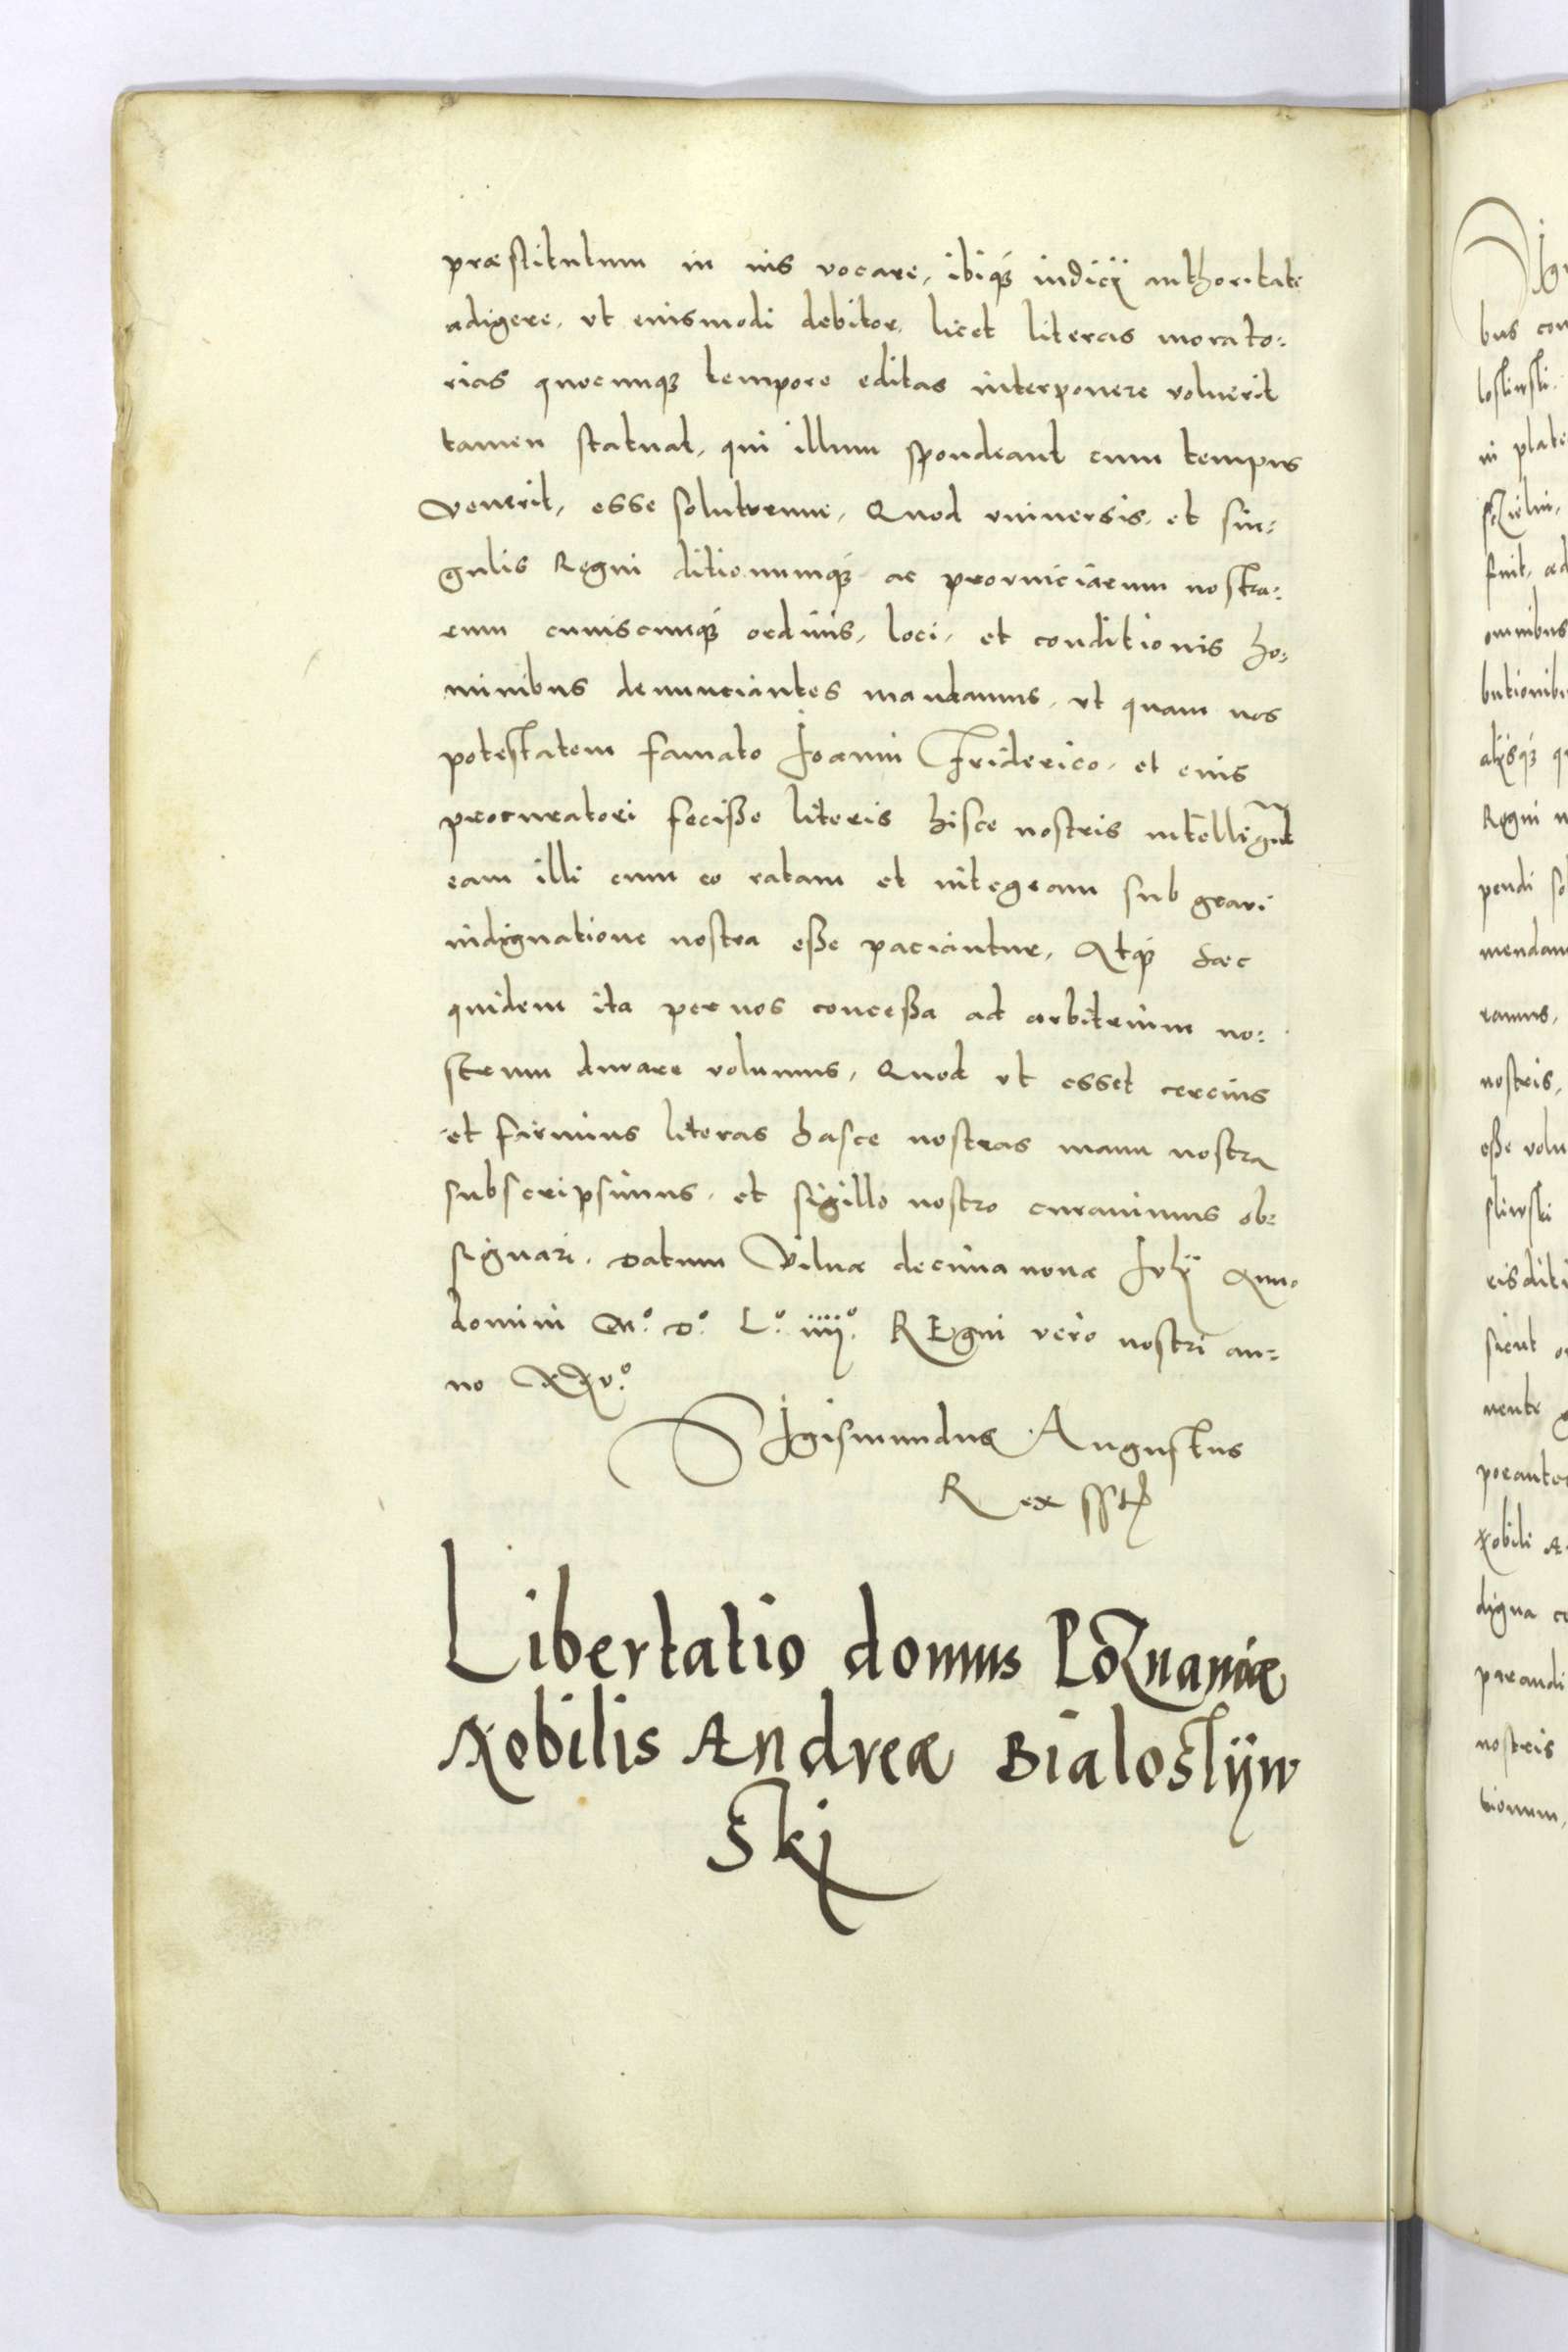 præstitutum in ius vocare, ibiq́ꝫ iudicij authoritate
adigere, vt eiusmodi debitor, licet literas morato:
rias quocunqꝫ tempore editas interponere voluerit
tamen statuat, qui illum spondeant cum tempus
venerit, esse soluturum, Quod vniuersis, et sin:
gulis Regni ditionumq́ꝫ ac prouinciarum nostra:
rum cuiuscunq́ꝫ ordinis, loci, et conditionis ho:
minibus denunciantes mandamus, vt quam nos
potestatem famato Ioanni Friderico, et eius
procuratori feciße literis hisce nostris intelligūt
eam illi cum eo ratam et integram sub graui
indignatione nostra eße paciantur, Atq́ꝫ hæc
quidem ita per nos conceßa ad arbitrium no:
strum durare volumus, Quod vt esset cercius
et firmius literas hasce nostras manu nostra
subscripsimus, et sigillo nostro curauimus ob:
signari. Datum Vilnæ decima nona Iulij Anno
domini M.º D.º L.º iiij.º REgni vero nostri an:
no XXv.º
SIgismundus Augustus
Rex sst
Libertatio domus Poznaniæ
Nobilis Andreæ Bialoslijw
skj
bus con
losliwski
in plate
fuit, æd
omnibus
butionib
alijsq́ꝫ q
Regni n
pendi so
mendam
ramus,
nostris,
eße volu
sliwski
risditi
sicut o
uente g
porantes
Nobili A
digna c
parandi
nostris
tionum,